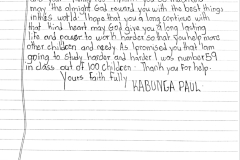 may the almight God reward you with the best things
in this world. I hope that you a long continue with
that kind heart may God give you a long lasting
life and power to work harder so that you help more
other children and needy. As I promised you that Iam
going to study harder and harder I was number 59
in class out of 100 children. Thank you for help.
Yours faith fully
KABUNGA PAUL.